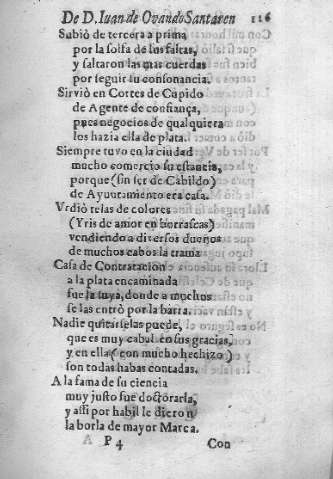 De D. Iuan de Ovando Santaren 116
Subiò de tercera a prima
por la solfa de sus faltas,
y saltaron las mas cuerdas
por seguir su consonancia.
Sirviò en Cortes de Cupido
de Agente de confiança,
pues negocios de qualquiera
los hazia ella de plata.
Siempre tuvo en la ciudad
mucho comercio su estancia,
porque (sin ser de Cabildo)
de Ayuntamiento era casa.
Vrdiò telas de colores
(Yris de amor en borrascas)
vendiendo a diversos dueños
de muchos cabos la trama
Casa de Contratacion
a la plata encaminada
fue la suya, donde a muchos
se les entrò por la barra.
Nadie quitarselas puede,
que es muy cabal en sus gracias,
y en ella (con mucho hechizo)
son todas habas contadas.
A la fama de su ciencia
muy justo fue doctorarla,
y assi por habil le dieron
la borla de mayor Marca.
P 4 Con